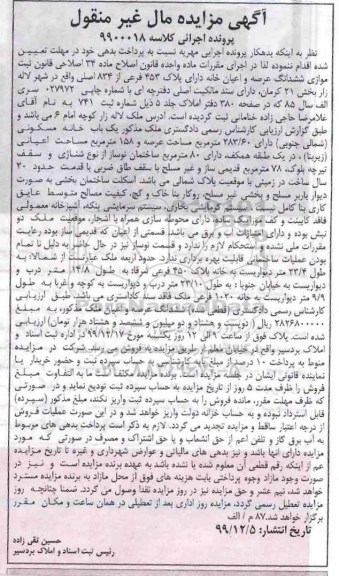 آگهی مزایده مال غیر منقول
پرونده اجرائی کلاسه ۹۹۰۰۰۱۸
نظر به اینکه بدهکار پرونده اجرایی مهریه نسبت به پرداخت بدهی خود در مهلت تعیین
شده اقدام ننموده لذا در اجرای مقررات ماده واحده قانون اصلاح ماده ۳۴ اصلاحی قانون ثبت
موازی ششدانگ عرصه و اعیان خانه دارای پلاک ۴۵۳ فرعی از ۸۳۴ اصلی واقع در شهر لاله
زار بخش ۲۱ کرمان، دارای سند مالکیت اصلی دفترچه ای با شماره چاپی ۰۲۷۹۷۲ سری
الف سال ۸۵ که در صفحه ۳۸۰ دفتر املاک جلد ۵ ذیل شماره ثبت ۷۴۱ به نام آقای
غلامرضا حاجی زاده ثبت گردیده است. آدرس ملک لاله زار کوچه امام ۶ می باشد و
طبق گزارش ارزیابی کارشناس رسمی دادگستری ملک مذکور یک باب خانه مسکونی
(شمالی جنوبی) دارای ۲۸۳/۶۰ مترمربع مساحت عرصه و ۱۵۸ مترمربع مساحت اعیانی
(زیربنا)، در یک طبقه همکف، دارای ۸۰ مترمربع ساختمان نوساز از نوع شناژی و سقف
تیرچه بلوک، ۷۸ مترمربع قدیمی ساز و غیر مسلح با سقف طاق ضربی با قدمت حدود ۲۰
سال ساخت در زمینی با موقعیت پلاک شمالی می باشد. اسکلت ساختمان بخشی به صورت
دیوار باربر مسلح و بخشی غیر مسلح، روکار بنا خاک و گچ، کیفیت مصالح متوسط عایق
فاقد کابینت و کف موزائیک ساده، دارای محوطه سازی همراه با اشجار، موقعیت ملک دو
نبش بوده و دارای امتیازات آب و برق می باشد. قسمتی از اعیان که قدیمی ساز بوده رعایت
مقررات ملی نشده و استحکام لازم را ندارد و قسمت نوساز نیز در حال حاضر به دلیل نا تمام
بودن عملیات ساختمانی قابلیت بهره برداری ندارد. حدود اربعه ملک عبارتست از شمالا: به
طول ۲۳/۴ متر دیواریست به خانه پلاک ۴۵۰ فرعی شرقا: به طول ۱۴/۸ متر درب و
دیواریست به خیابان جنوبا: به طول ۲۳/۱۰ متر درب و دیواریست به کوچه و غربا به طول
۹/۹ متر دیواریست به خانه ۱۰۲۰ فرعی ملک فاقد سند کاداستری می باشد. طبق ارزیابی
کارشناس رسمی دادگستری (قطعی شده) ششدانگ عرصه و اعیان ملک مذکور، به مبلغ
۲۸۲۶۸۰۰۰۰۰ ریال (دویست و هشتاد و دو میلیون و ششصد و هشتاد هزار تومان) ارزیابی
شده است. پلاک فوق از ساعت ۹ الی ۱۲ روز یکشنبه مورخ ۹۹/۱۲/۱۷ در اداره ثبت اسناد و
املاک بردسیر واقع در خیابان معلم از طریق مزایده به فروش می رسد. شرکت در مزایده
منوط به پرداخت ۱۰ درصد از مبلغ پایه کارشناسی به حساب سپرده ثبت و حضور خریدار یا
نماینده قانونی ایشان در جلسه مزایده است. برنده مزایده مکلف است ما به التفاوت مبلغ
فروش را ظرف مدت ۵ روز از تاریخ مزایده به حساب سپرده ثبت تودیع نماید و در صورتی
که ظرف مهلت مقرر، مانده فروش را به حساب سپرده ثبت واریز نکند، مبلغ مذکور (سپرده)
قابل استرداد نبوده و به حساب خزانه دولت واریز خواهد شد و در این صورت عملیات فروش
از درجه اعتبار ساقط و مزایده تجدید می گردد. لازم به ذکر است پرداخت بدهی های مربوط
به آب برق گاز و تلفن اعم از حق انشعاب و یا حق اشتراک و مصرف در صورتی که مورد
مزایده دارای آنها باشد و نیز بدهی های مالیاتی و عوارض شهرداری و غیره تا تاریخ مزایده
عم از اینکه رقم قطعی آن معلوم شده یا نشده باشد به عهده برنده مزایده است و نیز در
صورت وجود مازاد وجوه پرداختی بابت هزینه های فوق از محل مازاد به برنده مزایده مسترد
خواهد شد، نیم عشر و حق مزایده نیز در روز مزایده نقدا وصول می گردد. ضمنا چنانچه روز
مزایده تعطیل رسمی گردد، مزایده روز اداری بعد از تعطیلی در همان ساعت و مکان مقرر
برگزار خواهد شد. ۸۷ م / الف
تاریخ انتشار: ۹۹/۱۲/۵
حسین تقی زاده
رئیس ثبت اسناد و املاک بردسیر